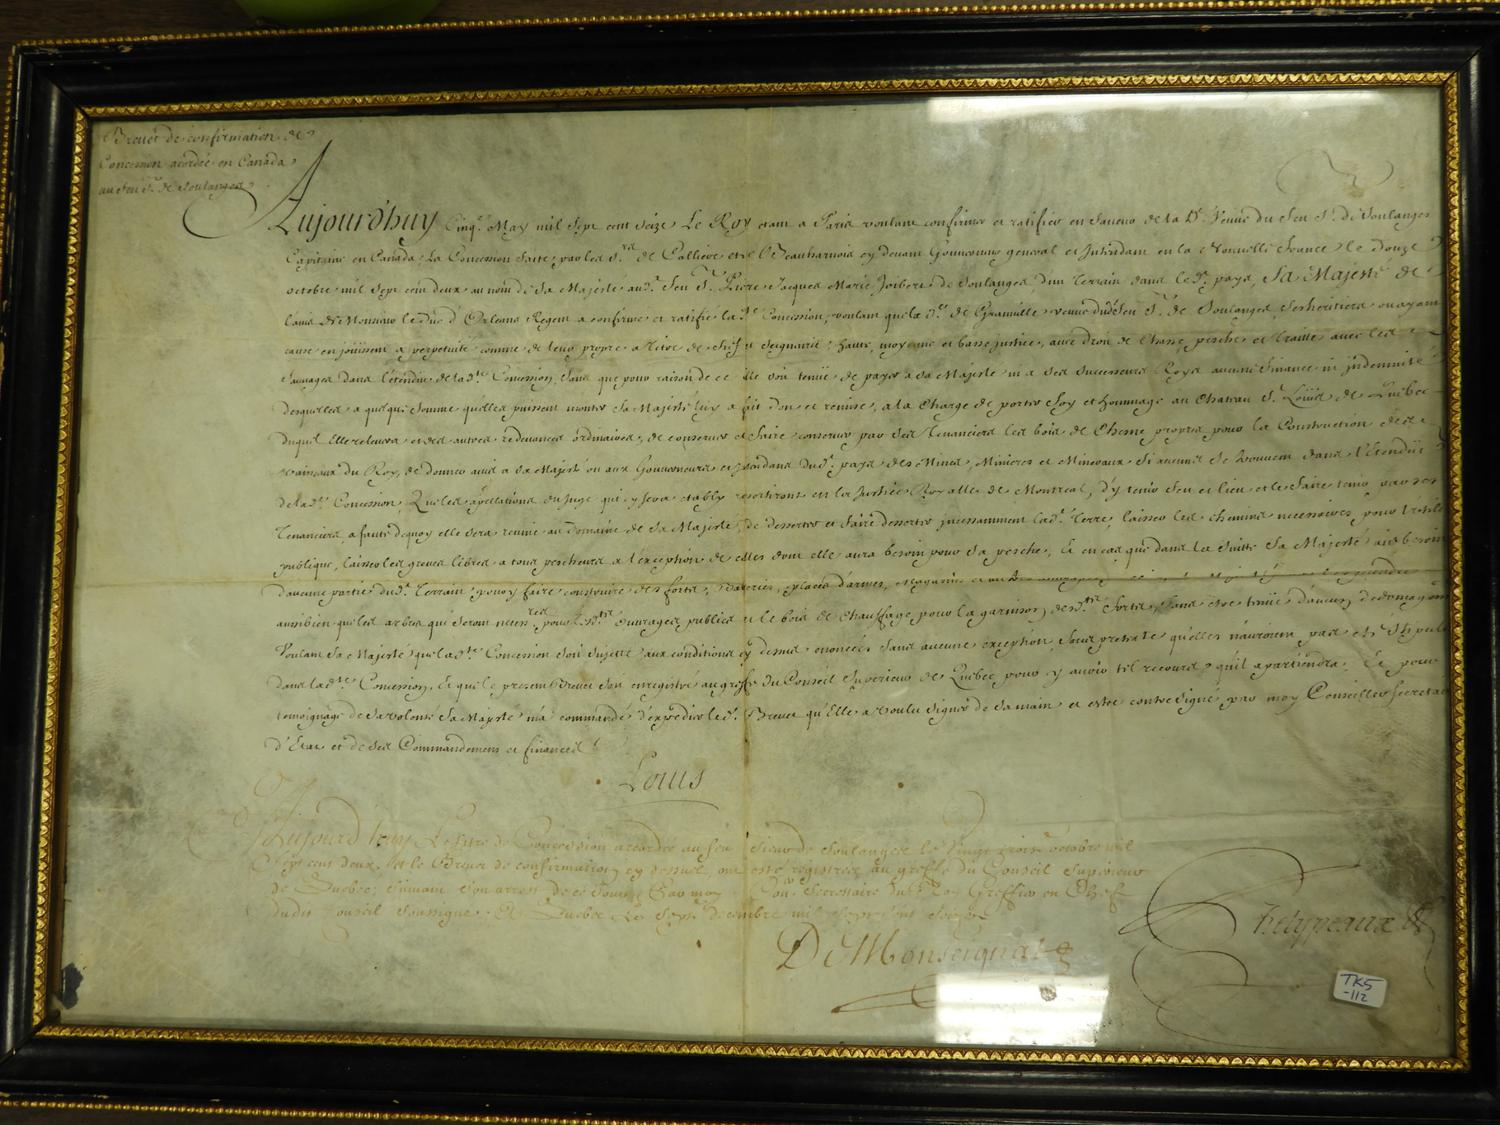 Brevet de confirmation de
Concession acordée en Canada
au feu Sr. de Soulanges.
Aujourd'huy Cinq.e May mil sept cent seize Le Roy etant a Paris voulant confirmer et ratifier en faveur de la De. Veuve du feu Sr. de Soulanges
Capitaine en Canada La Concession faite par les Srs. de Calliere et de Beauharnois cy devant Gouverneur general et Intendant en la Nouvelle france le douze
octobre mil sept cent deux au nom de Sa Majesté aud. feu Sr. Pierre Jacques Marie Joibert de Soulanges d'un terrain dans led. pays, Sa Majesté de
l'avis de Monsieur le Duc d'Orleans Regent a confirmé et ratifié lad. Concession, voulant que la De. de veuve dud. feu Sr. de Soulanges ses heritiers ou ayans
cause en jouissent a perpetuité comme de leur propre a titre de fief et Seigneurie, haute, moyenne et basse justice, avec droit de Chasse, pesche et traitte avec les
Sauvages dans l'étendue de lad.te Concession, sans que pour raison de ce elle soit tenüe de payer a Sa Majesté ni a ses successeurs Roys aucune finance ni indemnité
desquelles a quelque somme qu'elles puissent monter Sa Majesté luy a fait don et remise, a la charge de porter foy et hommage au Chateau St. Loüis de Quebec
duquel Elle relevera et des autres redevances ordinaires, de conserver et faire conserver par ses tenanciers les bois de Chesne propres pour la Construction des
vaisseaux du Roy, de donner avis a Sa Majesté ou aux Gouverneurs et Intendans dud. pays des Mines, Minieres et Mineraux si aucuns se trouvent dans l'Etendüe
de lad.te Concession, Que les apellations du Juge qui y sera etably resortiront en la Justice Royalle de Montreal, d'y tenir feu et lieu et le faire tenir par ses
tenanciers, a faute dequoy elle sera reunie au Domaine de Sa Majesté, de deserter et faire deserter incessamment lad. terre, laisser les chemins necessaires pour l'utilité
publique, laisser les greves libres a tous pescheurs a l'exception de celles dont elle aura besoin pour sa pesche, Et en cas que dans la suitte Sa Majesté ait besoin
d'aucune partie dud. terrain pour y faire construire des forts, batteries, places d'armes, Magasins et
aussi bien que les arbres qui seront necess.res pour lesd.ts ouvrages publics et le bois de chauffage pour la garnison desd.ts forts, sans etre tenüe d'aucun dedomagem
Voulant Sa Majesté que lad.te Concession soit sujette aux conditions cy dessus enoncées sans aucune exception, sous pretexte qu'elles n'auroient pas eté stipulées
dans lad.te Concession, Et que le present Brevet soit enregistré au greffe du Conseil Superieur de Quebec pour y avoir tel recours qu'il apartiendra. Et pour
temoignage de sa volonté Sa Majesté m'a commandé d'expedier led. Brevet qu'Elle a voulu signer de sa main et estre contresigné par moy Conseiller Secreta
d'Etat et de ses Commandemens et finances
Louis
Aujourd'huy Le titre de Concession accordée au feu Sieur de Soulanges le octobre mil
Sept cent deux, et le Brevet de confirmation cy dessus, ont esté registrez au greffe du Conseil Superieur
de Quebec, suivant son arrest de ce jour, Par moy Con.er Secretaire du Roy Greffier en Chef
dudit Conseil Soussigné. A Quebec Le Sept decembre mil sept cent seize
De Monseignat
Phelypeaux
TK5
-112